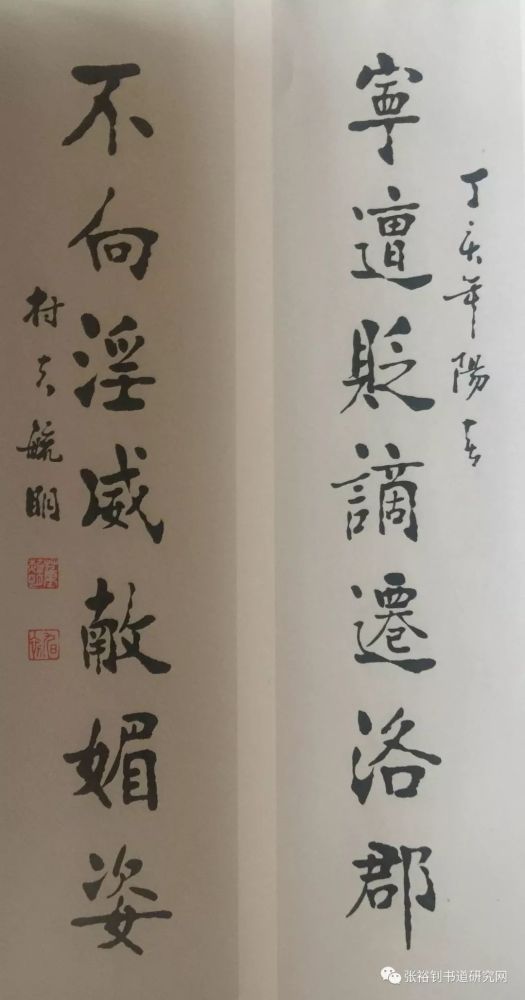 丁亥年陽春
寧遭貶謫遷洛郡
不向淫威敵媚姿
村夫毓明
张裕钊书道研究网